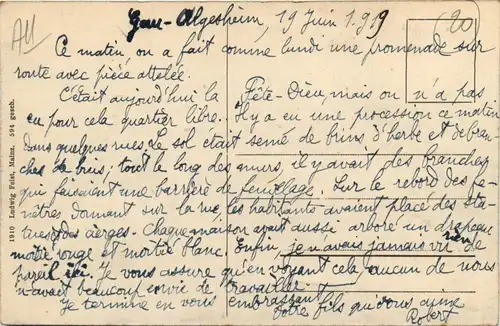 All
Gau-Algesheim, 19 Juin 1919
20
Ce matin, on a fait comme lundi une promenade sur
route avec pièce attelée.
C'était aujourd'hui la Fête-Dieu, mais on n'a pas
eu pour cela quartier libre. Il y a eu une procession ce matin
dans quelques rues. Le sol était semé de brins d'herbe et de bran-
ches de buis; tout le long des murs, il y avait des branches
qui faisaient une barrière de feuillage. Sur le rebord des fe-
nêtres donnant sur la rue, les habitants avaient placé des sta-
tues, des cierges. Chaque maison avait aussi arboré un drapeau
moitié rouge et moitié blanc. Enfin, je n'avais jamais vu rien de
pareil ici. Je vous assure qu'en voyant cela, aucun de nous
n'avait beaucoup envie de travailler.
Je termine en vous embrassant
Votre fils qui vous aime
Robert
1910 Ludwig Feist, Mainz. 594 gesch.